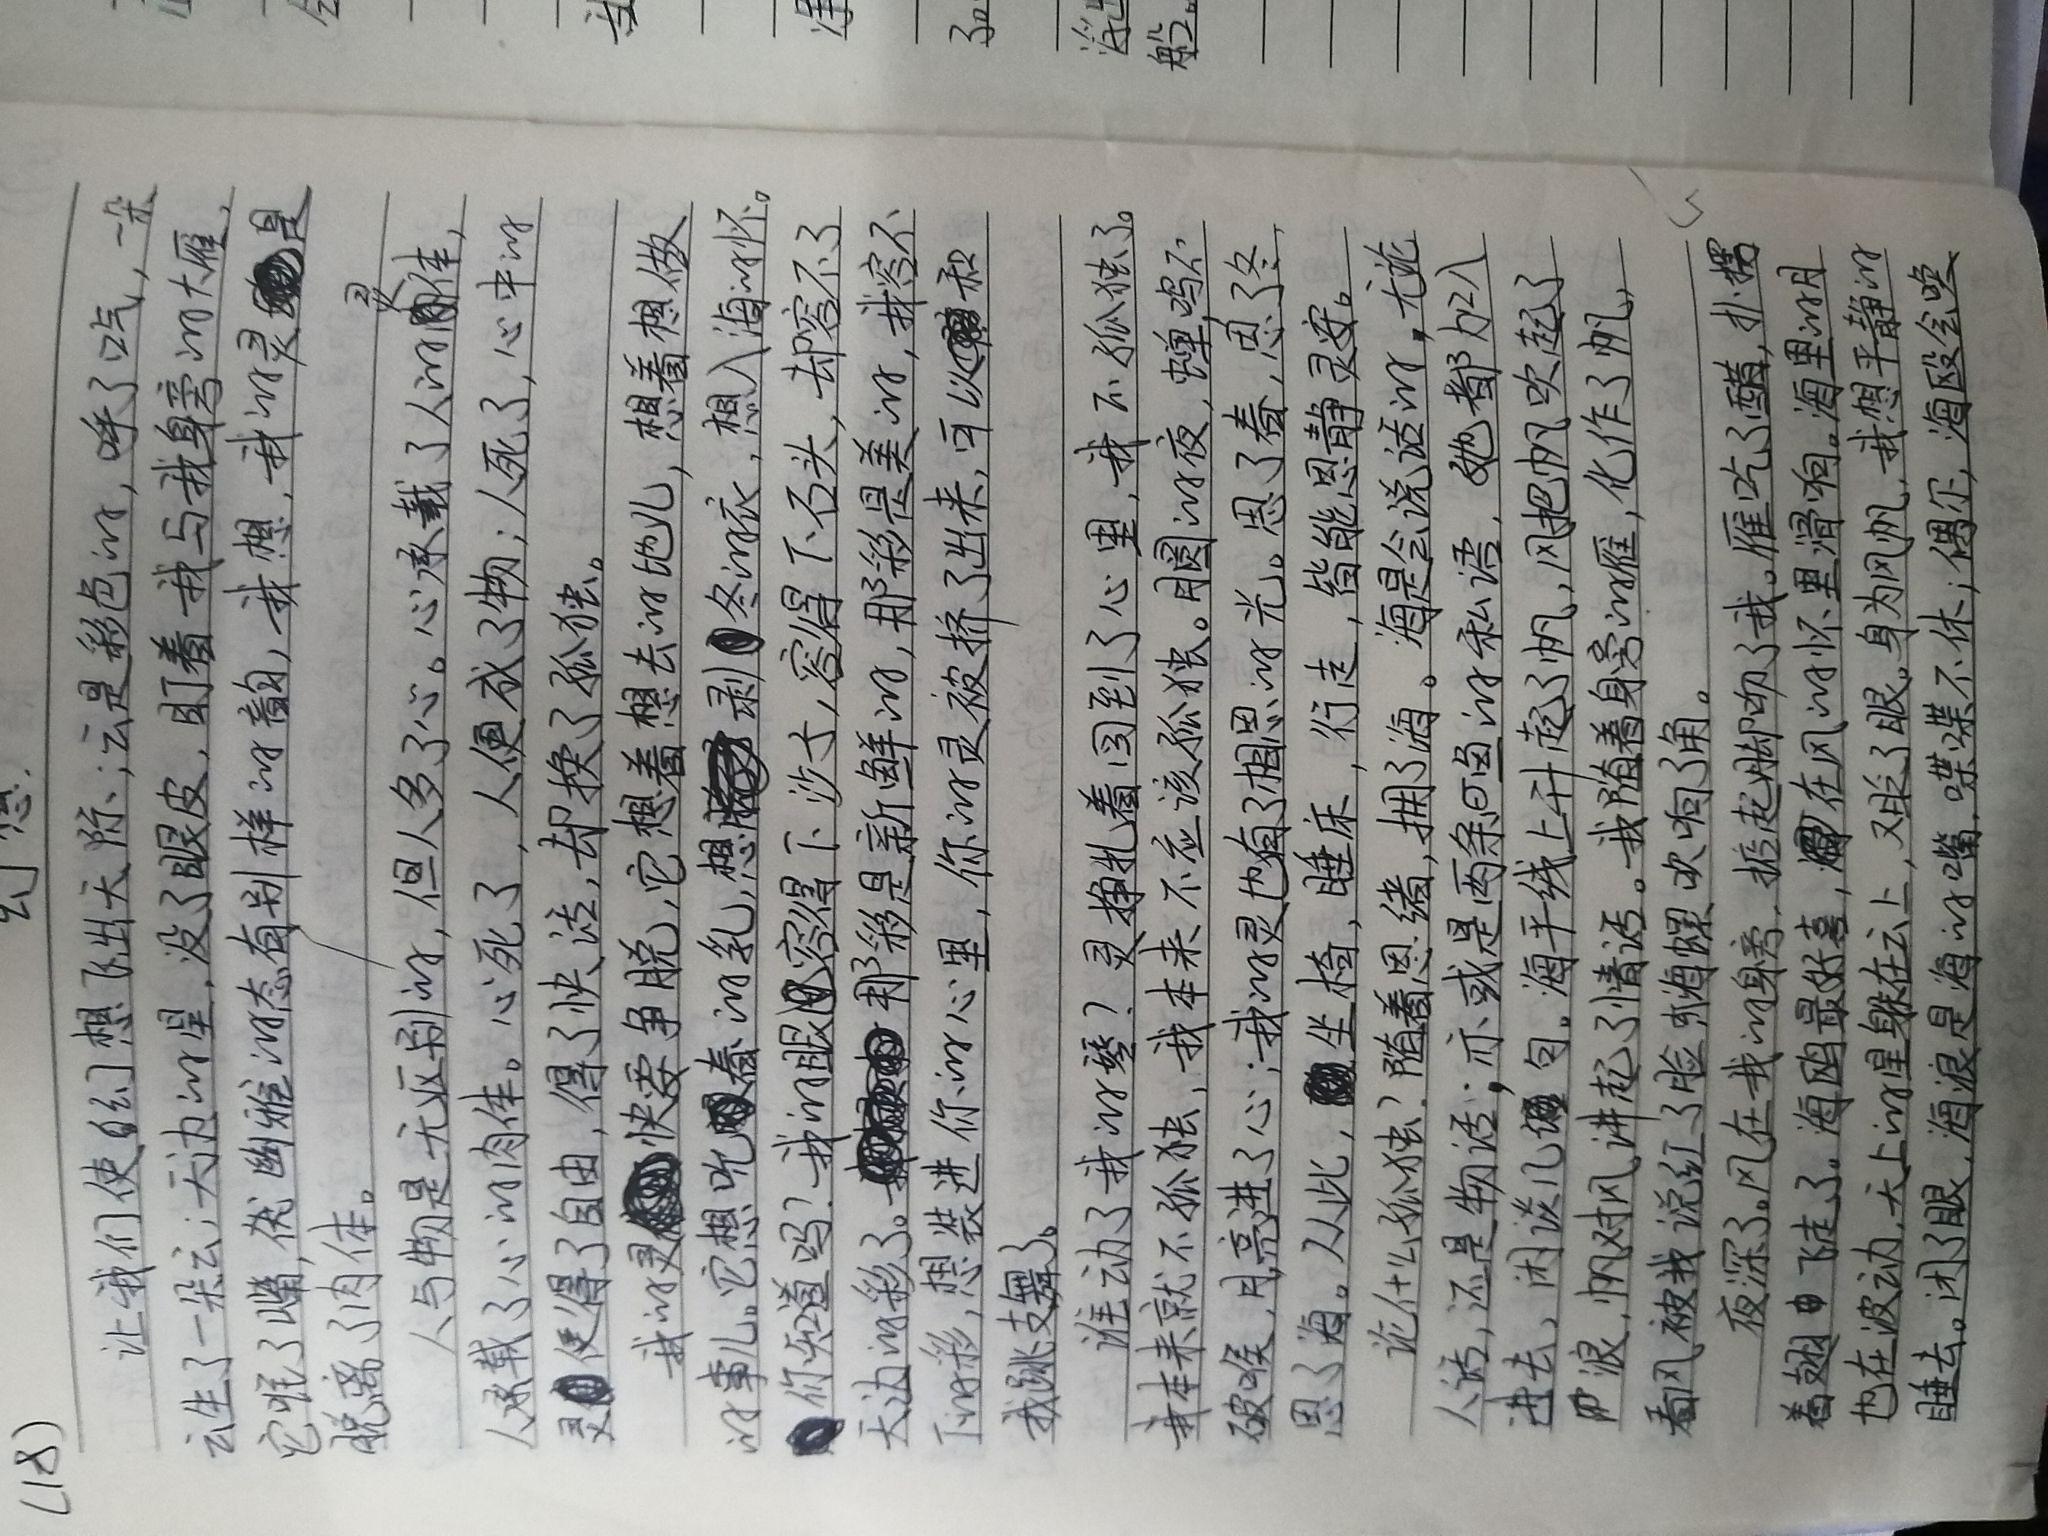 (18)
幻想.
让我们使幻想飞出天际；云是彩色的，呼了口气，一朵
云生了一朵云；天边的星，没了眼皮，盯着我与我身旁的大雁，
它咬了嘴，依幽雅的态有别样的韵，我想，我的灵是
脱离了肉体。
人与物是无区别的，但人多了心。心承载了人的灵体，
人承载了心的肉体。心死了，人便成了物；人死了，心中的
灵便得了自由，得了快活，却换了孤独。
我的灵快要争脱，它想着想去的地儿，想着想做
的事儿。它想吮春的乳，想剥冬的衣，想入海的怀。
你知道吗？我的眼容得下沙子，容得下石头，却容不了
天边的彩了。那彩是新鲜的，那彩是美的，我容不
下的彩，想装进你的心里，你的灵被挤了出来，可以和
我跳支舞了。
谁动了我的琴？灵挣扎着回到了心里，我不孤独了。
我本来就不孤独，我本来不应该孤独。月圆的夜，蝉鸣不
破喉，月亮进了心；我的灵也有了相思的光。思了春，思了冬，
思了海。从此，坐椅，睡床，行走，皆能思静灵安。
论什么孤独？随着思绪，拥了海。海是会说话的，无论
人话，还是物话；亦或是两条回鱼的私语，她都加入
进去，闲谈几句。海平线上升起了帆，风把帆吹起了
浪，帆对风讲起了情话。我随着身旁的雁，化作了帆，
看风被我说红了脸，海螺吹响了角。
夜深了。风在我的身旁，掂起脚吻了我。雁吃了醋，扑摆
着翅飞走了。海鸥最好喜，在风的怀里滑响。海里的月
也在波动，天上的星躲在云上，又眨了眼。身为风帆，我想平静的
睡去。闭了眼，海浪是海的嘴，喋喋不休；偶尔，海鸥会唤